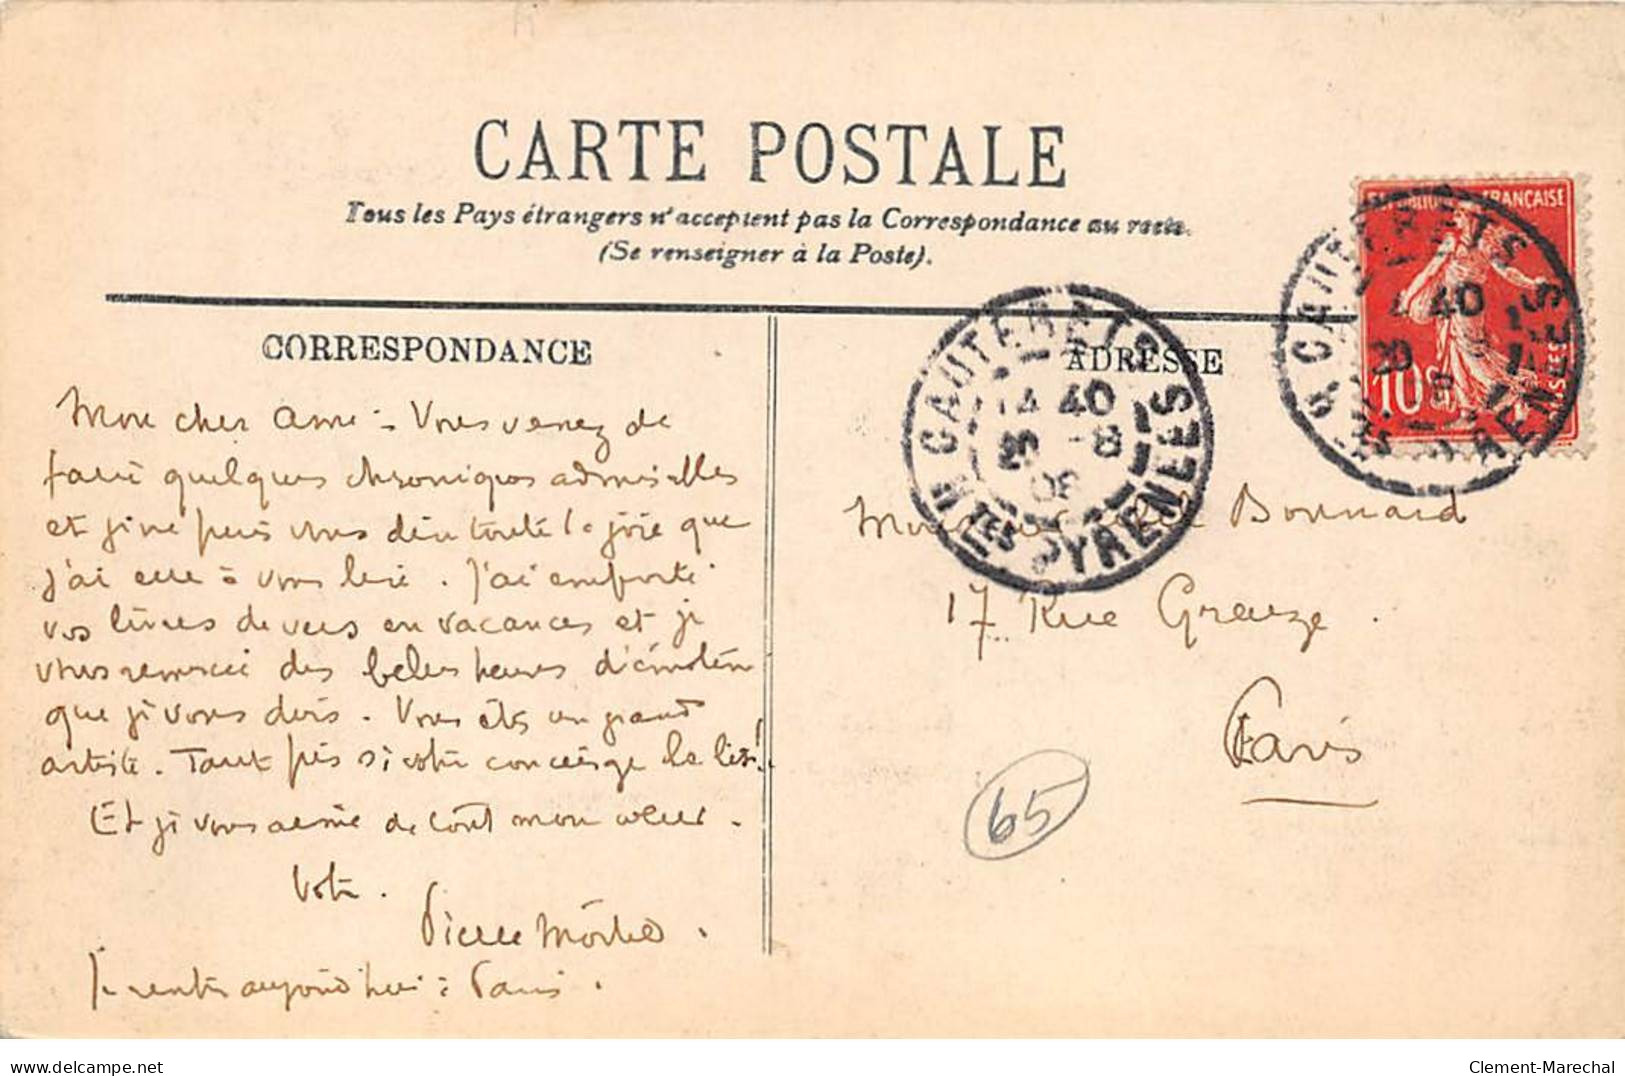 CARTE POSTALE
Tous les Pays étrangers n'acceptent pas la Correspondance au recto.
(Se renseigner à la Poste).
CORRESPONDANCE
Mon cher ami - Vous venez de
faire quelques chroniques admirables
et je ne puis vous dire toute la joie que
j'ai eue à vous lire. J'ai emporté
vos livres de vers en vacances et je
vous remercie des belles heures d'émotion
que je vous dois. Vous êtes un grand
artiste. Tant pis si votre concierge le lit!
Et je vous aime de tout mon cœur.
Votre.
Pierre
Je rentre aujourd'hui à Paris.
ADRESSE
Bonnard
17 Rue Greuze.
Paris
65
CAUTERETS
14 40
-8
08
HTES PYRENEES
REPUBLIQUE FRANÇAISE
10c
CAUTERETS
40
PYRENEES
Clement-Marechal